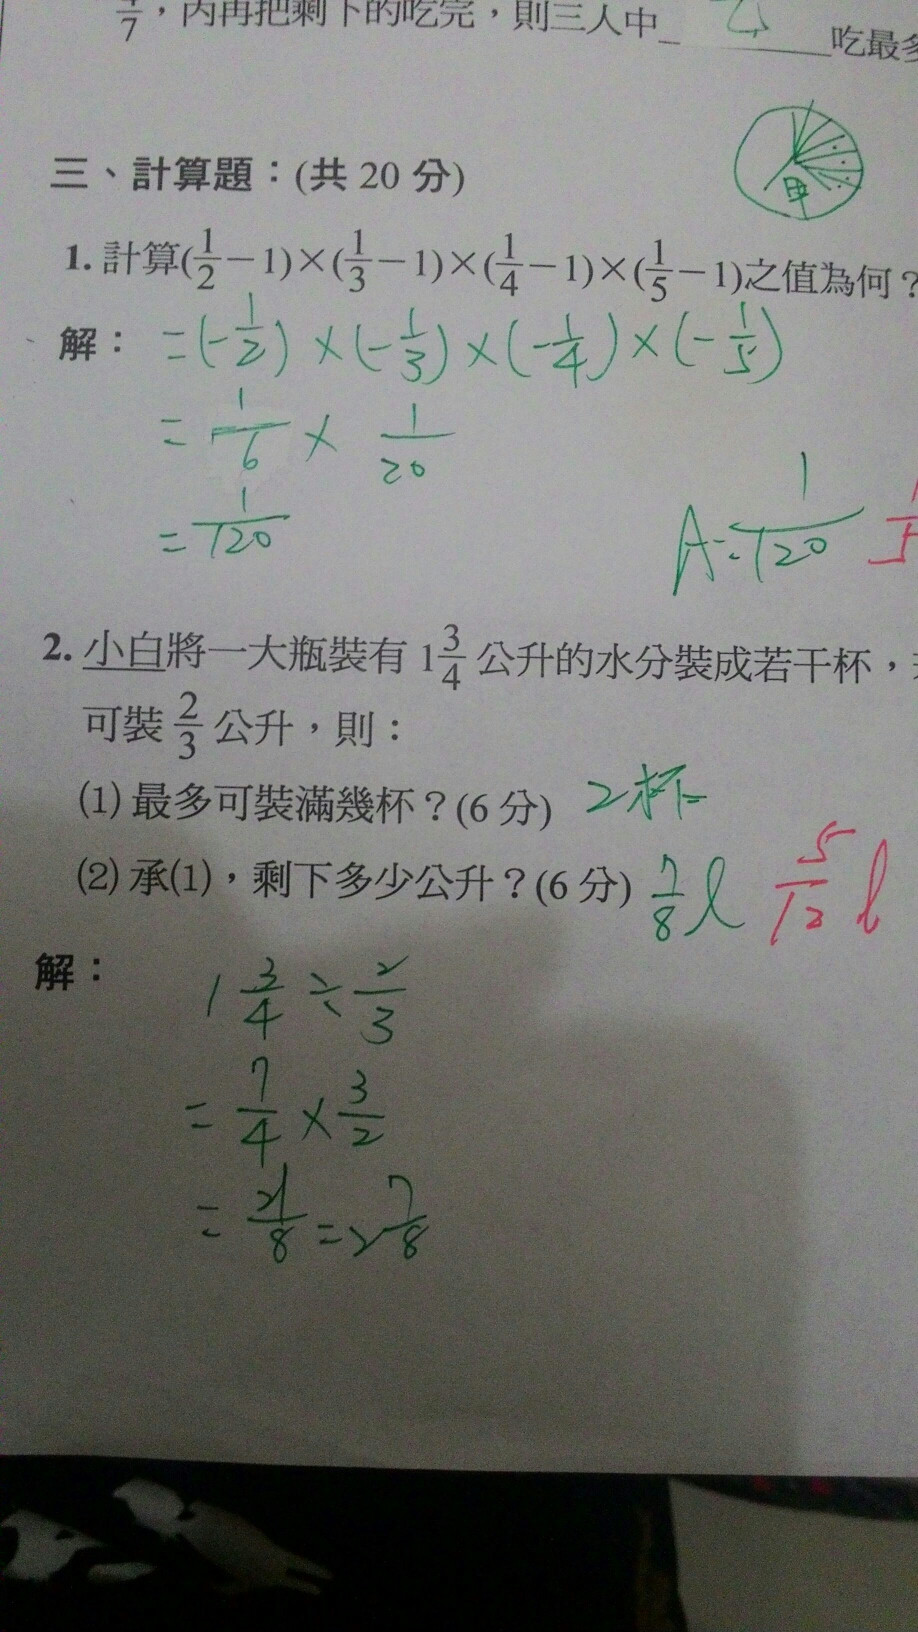 7，丙再把剩下的吃完，則三人中___乙___吃最多
甲
三、計算題：(共 20 分)
1. 計算(1/2－1)×(1/3－1)×(1/4－1)×(1/5－1)之值為何？
解： =(-1/2)×(-1/3)×(-1/4)×(-1/5)
= 1/6 × 1/20
= 1/120
A=1/120 1/5
2. 小白將一大瓶裝有 1 3/4 公升的水分裝成若干杯，
可裝 2/3 公升，則：
(1) 最多可裝滿幾杯？(6 分) 2杯
(2) 承(1)，剩下多少公升？(6 分) 7/8 l 5/12 l
解： 1 3/4 ÷ 2/3
= 7/4 × 3/2
= 21/8 = 2 7/8